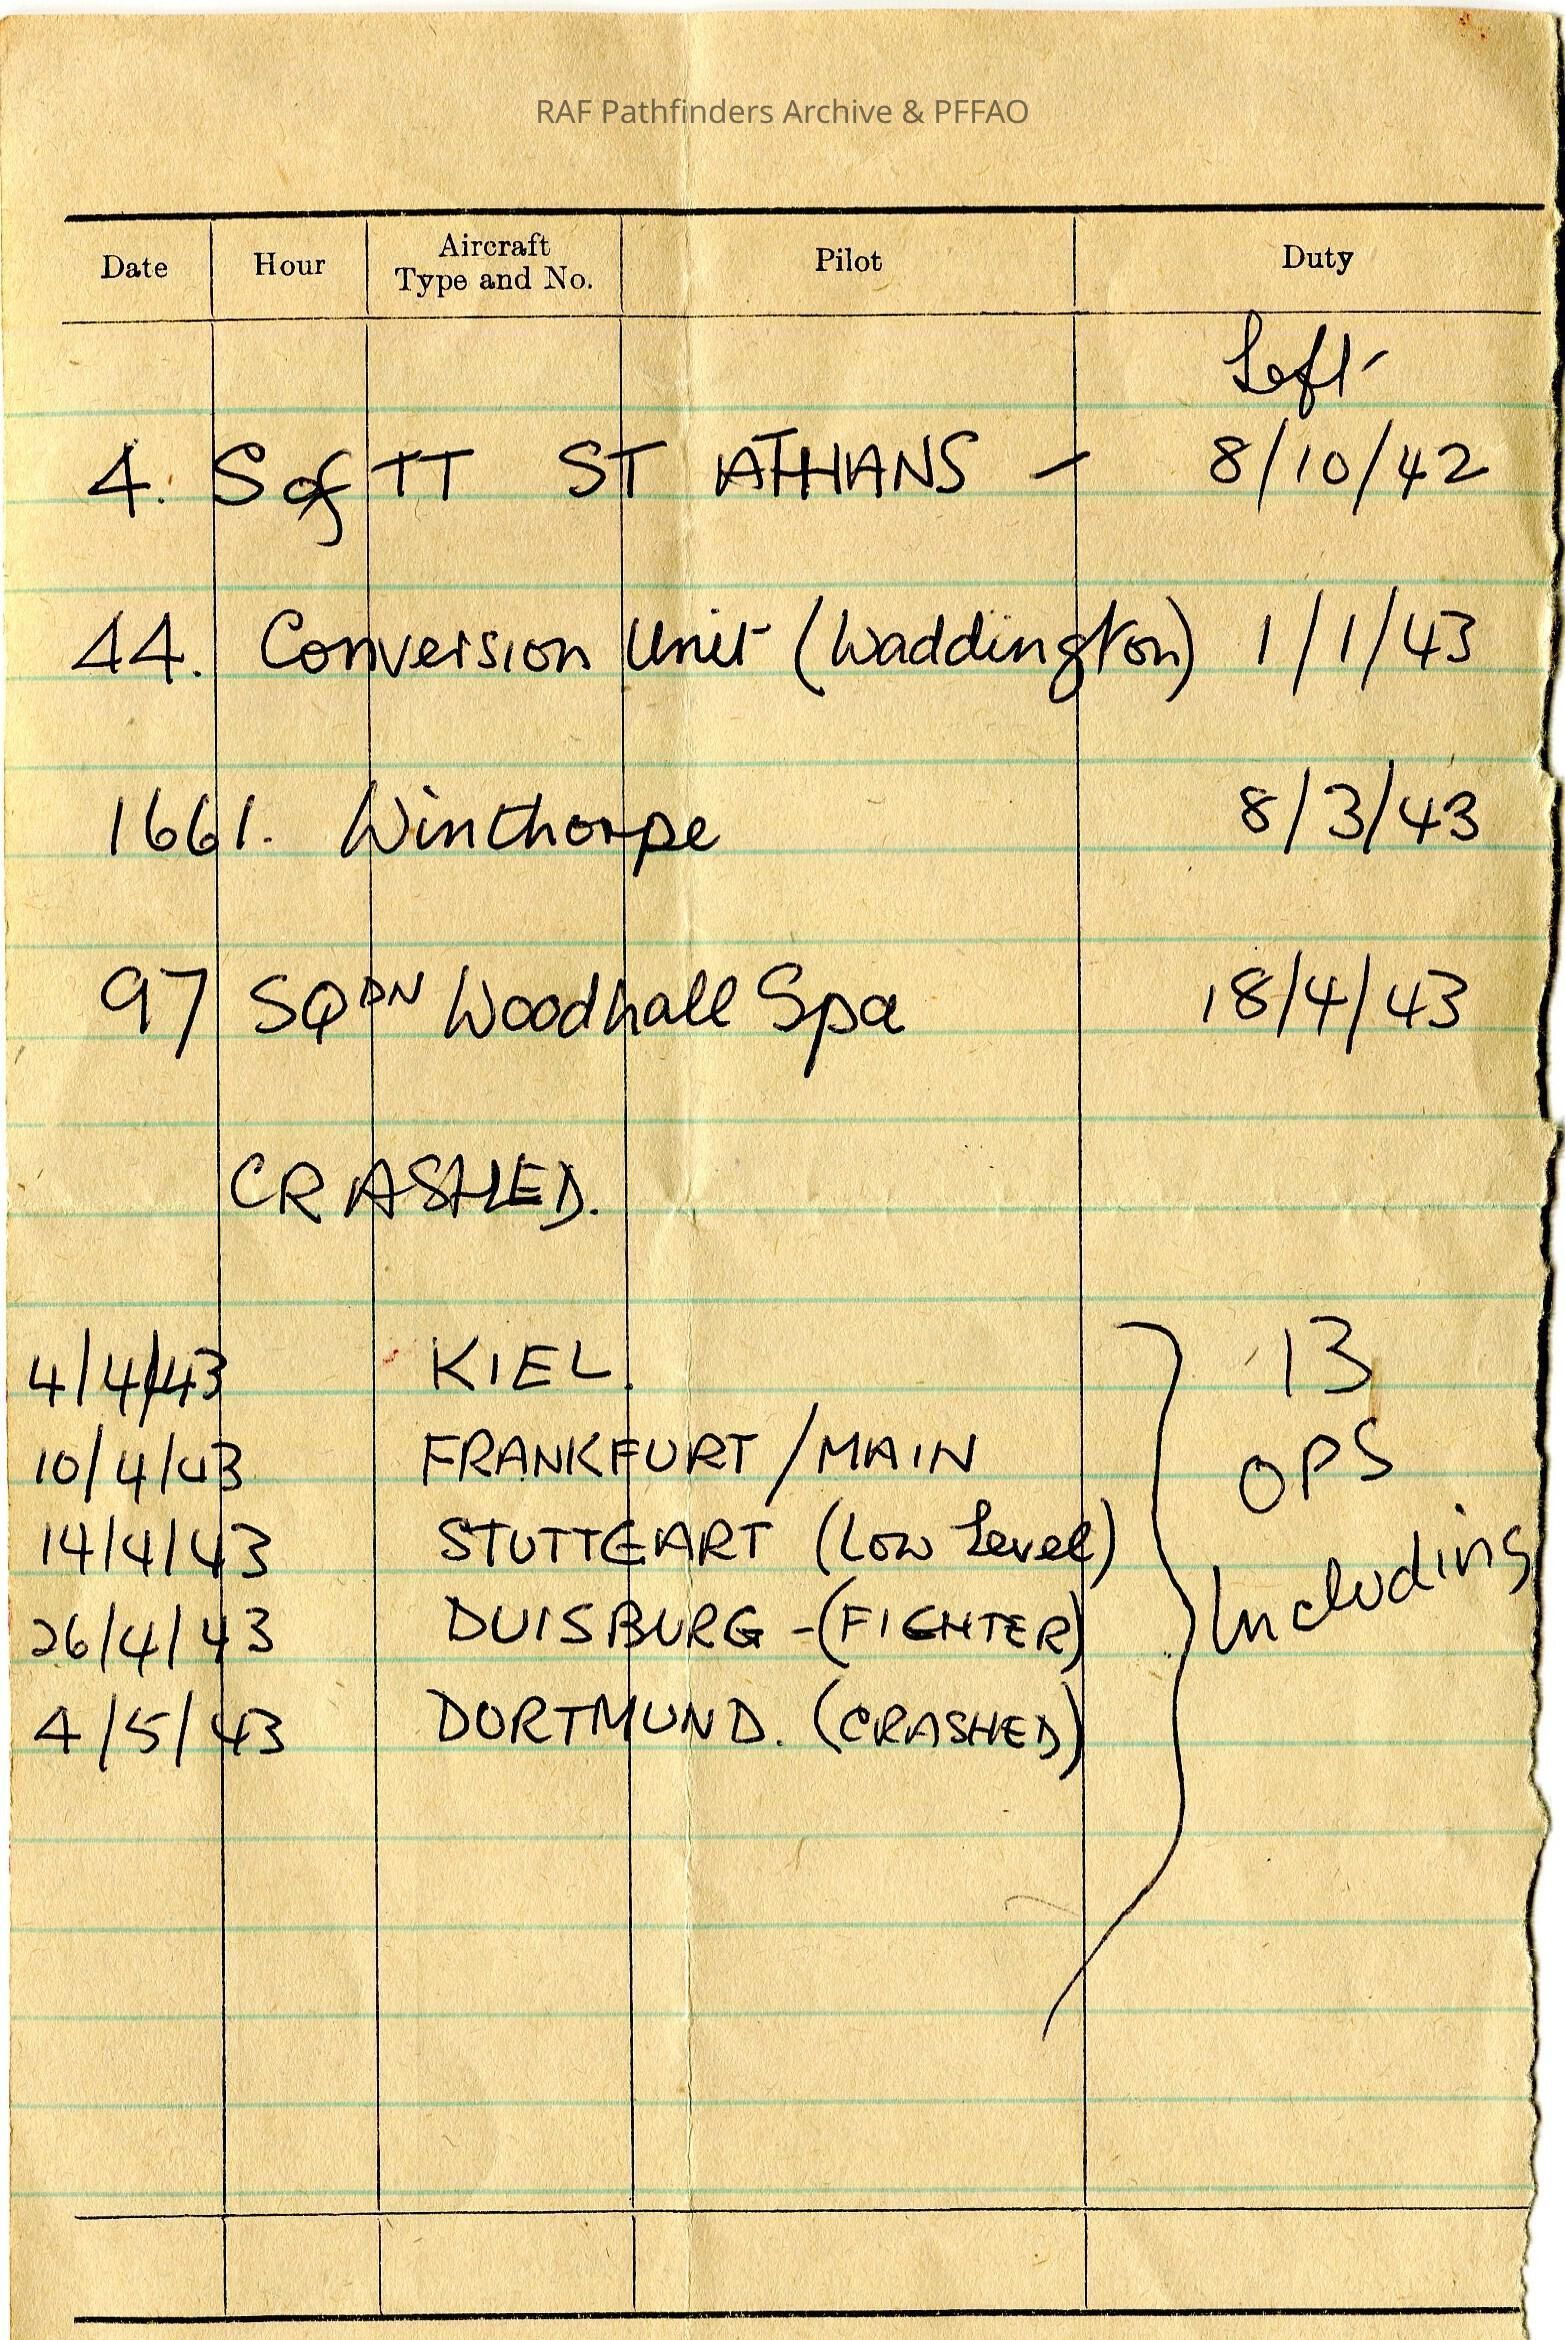 RAF Pathfinders Archive & PFFAO
Date Hour Aircraft Type and No. Pilot Duty
Left
4. S of TT ST ATHANS - 8/10/42
44. Conversion Unit (Waddington) 1/1/43
1661. Winthorpe 8/3/43
97 SQDN Woodhall Spa 18/4/43
CRASHED.
4/4/43 KIEL. 13
10/4/43 FRANKFURT /MAIN OPS
14/4/43 STUTTGART (Low Level) Including
26/4/43 DUISBURG - (FIGHTER)
4/5/43 DORTMUND. (CRASHED)